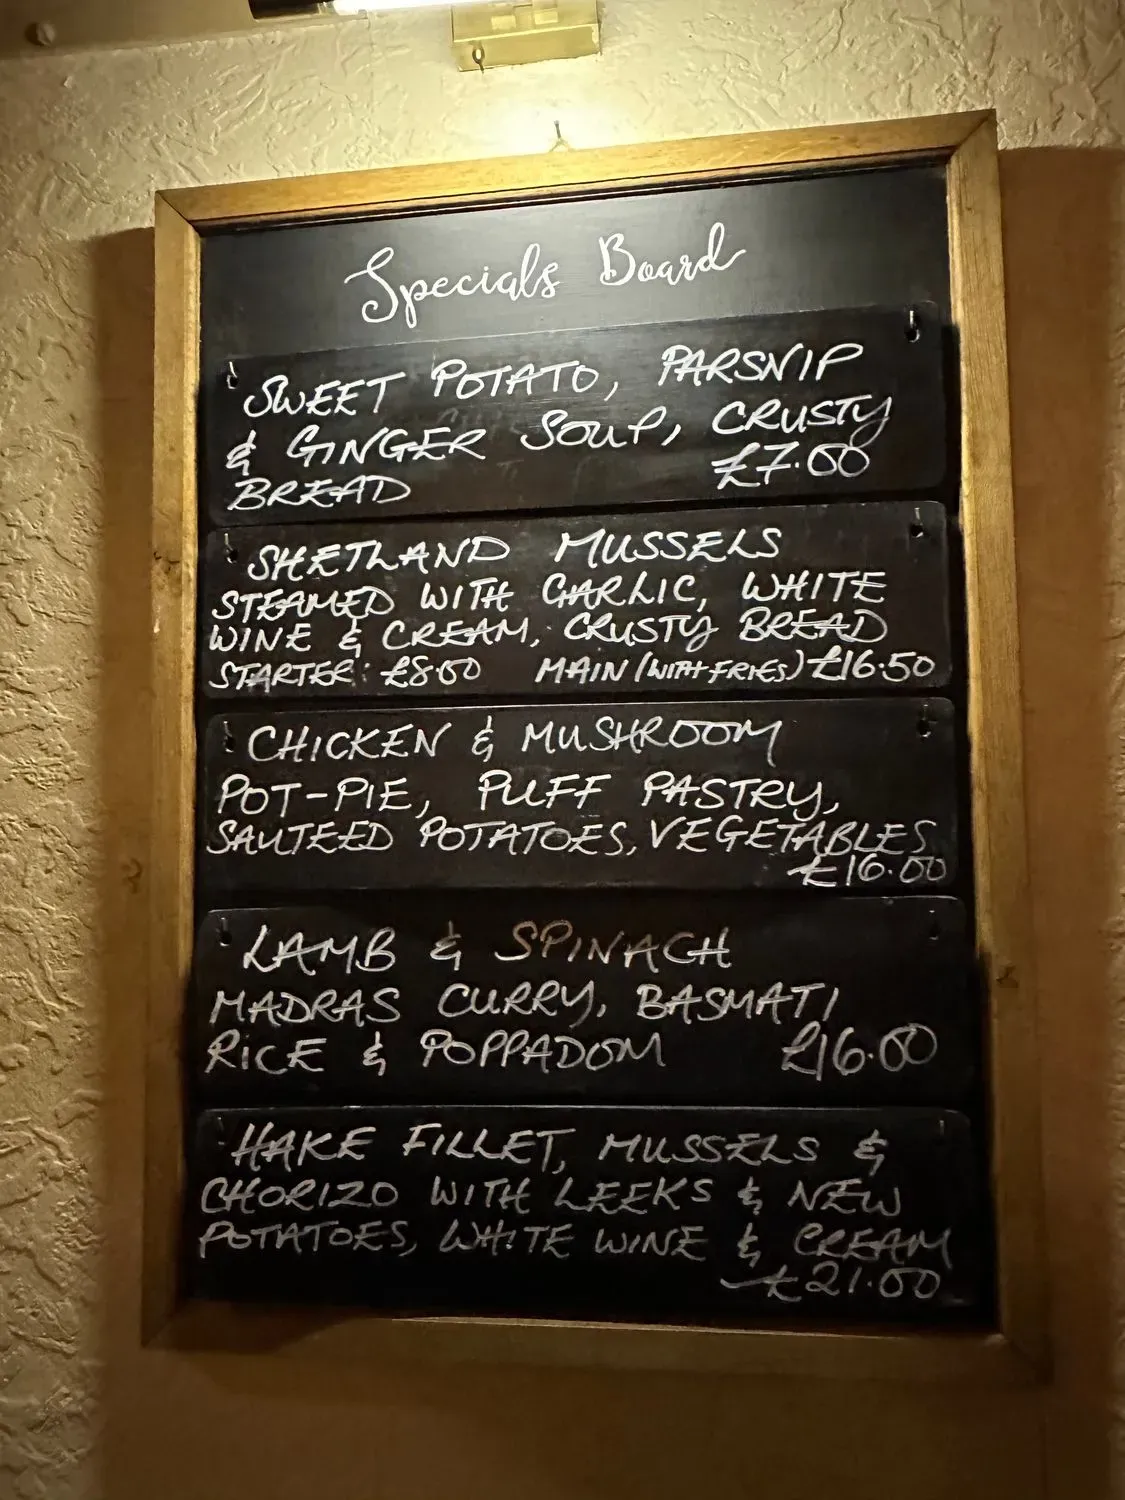 Specials Board
SWEET POTATO, PARSNIP
& GINGER SOUP, CRUSTY
BREAD £7.00
SHETLAND MUSSELS
STEAMED WITH GARLIC, WHITE
WINE & CREAM, CRUSTY BREAD
STARTER: £8.00 MAIN (WITH FRIES) £16.50
CHICKEN & MUSHROOM
POT-PIE, PUFF PASTRY,
SAUTEED POTATOES, VEGETABLES
£16.00
LAMB & SPINACH
MADRAS CURRY, BASMATI
RICE & POPPADOM £16.00
HAKE FILLET, MUSSELS &
CHORIZO WITH LEEKS & NEW
POTATOES, WHITE WINE & CREAM
£21.00